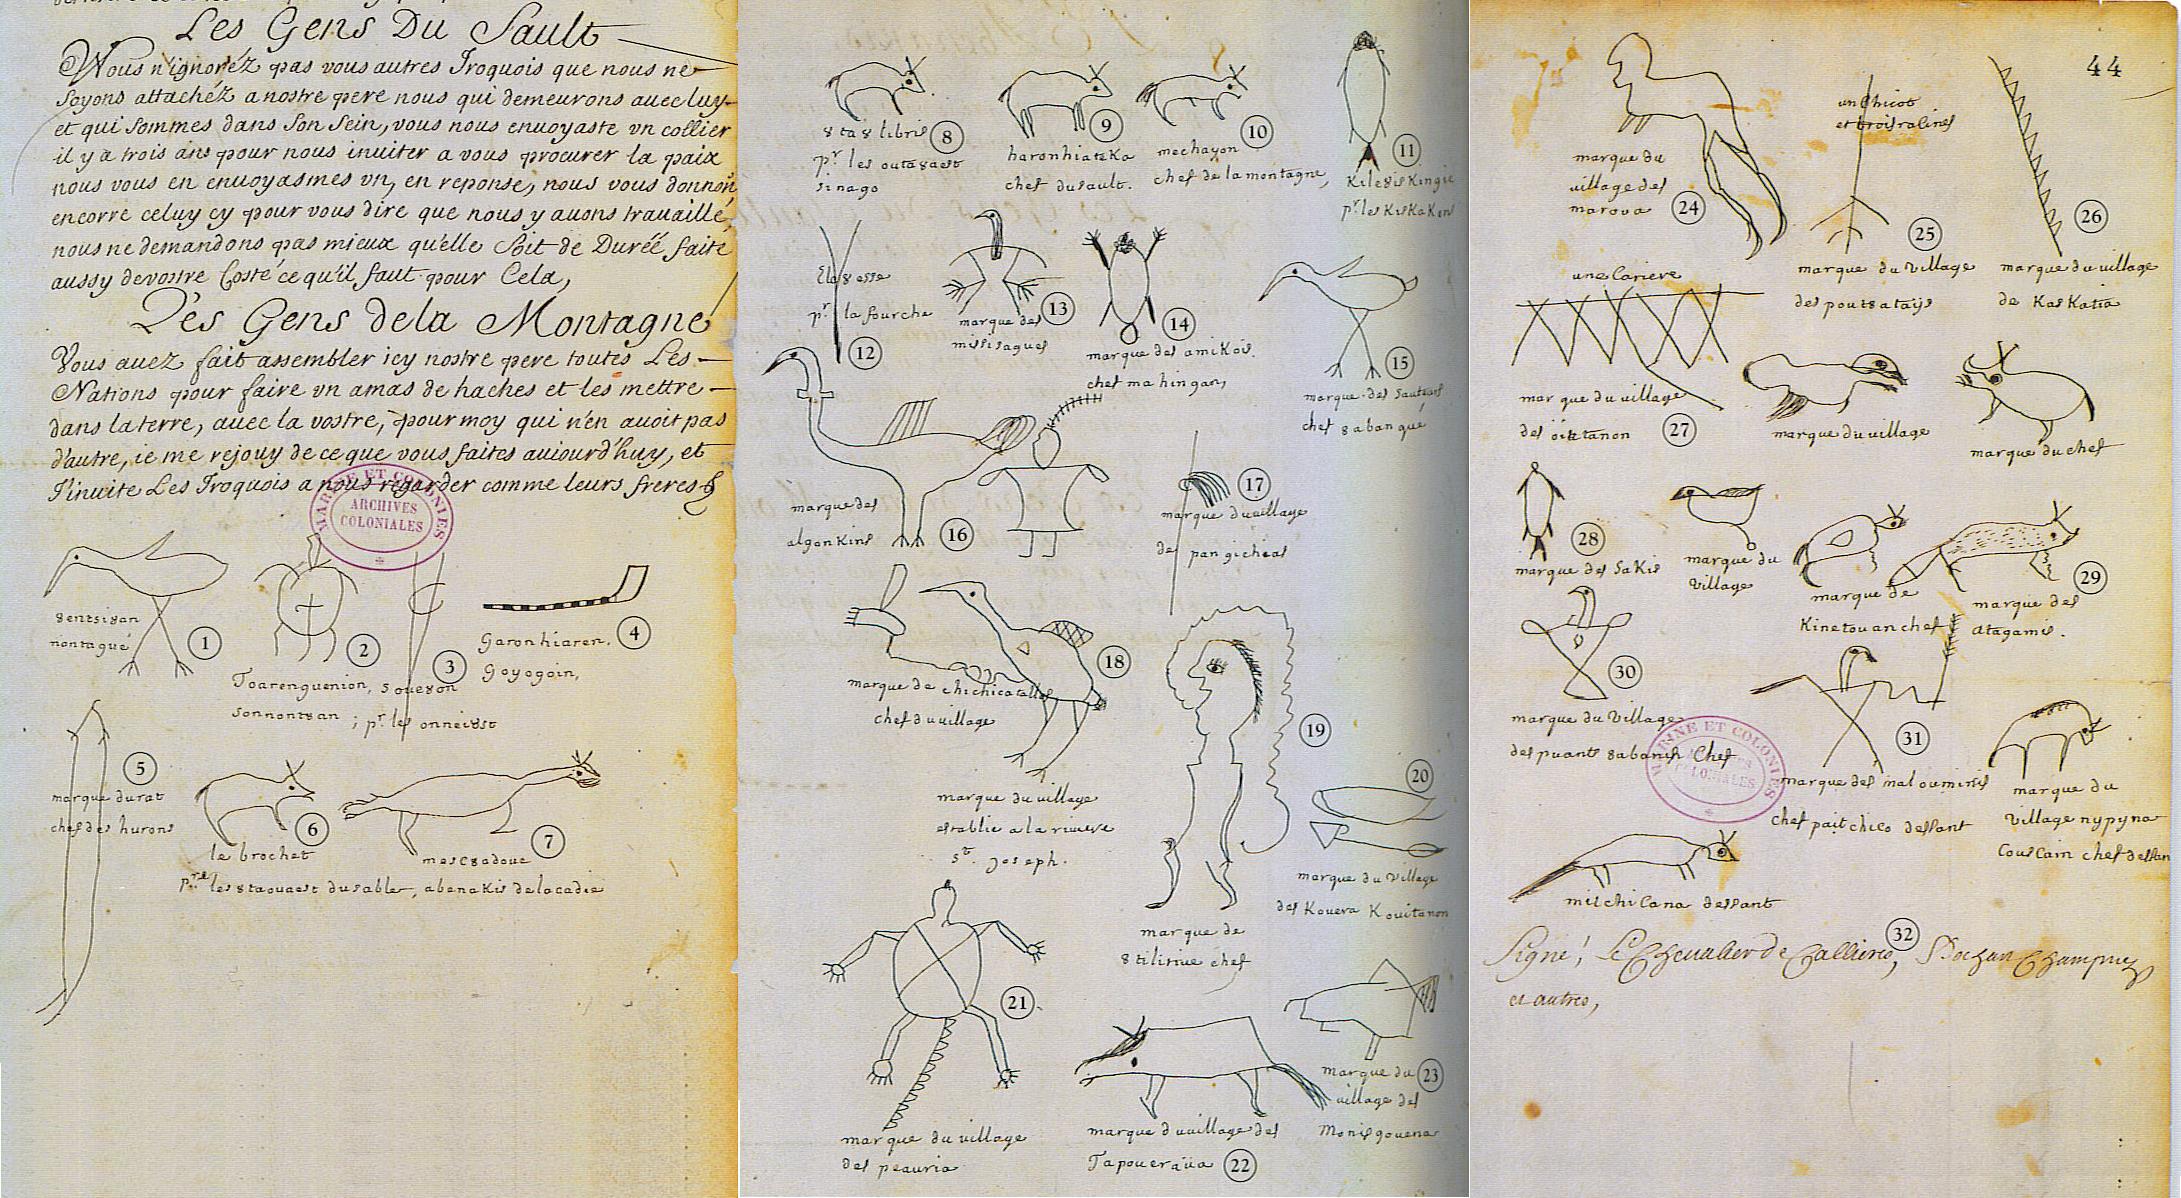 Les Gens Du Sault
Vous n'ignoréz pas vous autres Iroquois que nous ne
soyons attachéz a nostre pere nous qui demeurons auec luy
et qui sommes dans son sein, vous nous enuoyaste vn collier
il y a trois ans pour nous inuiter a vous procurer la paix
nous vous en enuoyasmes vn, en reponse, nous vous donnon
encorre celuy cy pour vous dire que nous y auons trauaillé,
nous ne demandons pas mieux qu'elle soit de Duréé faite
aussy de vostre Costé ce qu'il faut pour Cela,
Les Gens de la Montagne
Vous auez fait assembler icy nostre pere toutes Les
Nations pour faire vn amas de haches et les mettre
dans la terre, auec la vostre, pour moy qui n'en auoit pas
d'autre, ie me rejouy de ce que vous faites auiourd'huy, et
J'inuite Les Iroquois a nous regarder comme leurs freres
MARINE ET COLONIES
ARCHIVES
COLONIALES
8entsi8an
nontagué
1
2
Toarenguenion,
sonnont8an
3
pr. les onnei8st
4
Garonhiaren.
Goyogoin,
5
marque du rat
chef des hurons
6
le brochet
7
mesc8adoue
pre les 8taouaest du sable, abenakis de lacadie
8
8ta8libris
pr les outa8aest
sinago
9
haronhiateka
chef du sault.
10
mechayon
chef de la montagne,
11
Kile8isKingie
pr. les KisKaKons
12
Ela8esse
pr la fourche
13
marque des
missisagues
14
marque des amikois.
chef mahingan,
15
marque des Sauteurs
chef 8abangué
16
marque des
algonkins
17
marque du village
de pangicheas
18
marque de chichicatalle
chef du village
marque du village
establie a la riuiere
st. Joseph.
19
marque de
8tilirine chef
20
marque du village
des Kouera Kouitanon
21
marque du village
des peauria
22
marque du village des
Tapoueraüa
23
marque du
village des
Monisgouena
44
24
marque du
village des
maroua
un chicot
et trois racines
25
marque du village
des pout8ataÿs
26
marque du village
de KasKatia
une Cariere
27
marque du village
des
marque du village
marque du chef
28
marque des saKis
marque du
village
marque de
Kinetouan chef
29
marque des
atagamis.
30
marque du village
des puants 8abanch Chef
31
marque des maloumins
chef paitchico dessant
marque du
village nypyna
Couscain chef dessan
MARINE ET COLONIES
COLONIALES
milchilana dessant
32
Signé; Le Cheualier de Callieres, Bochart Champigny
et autres,